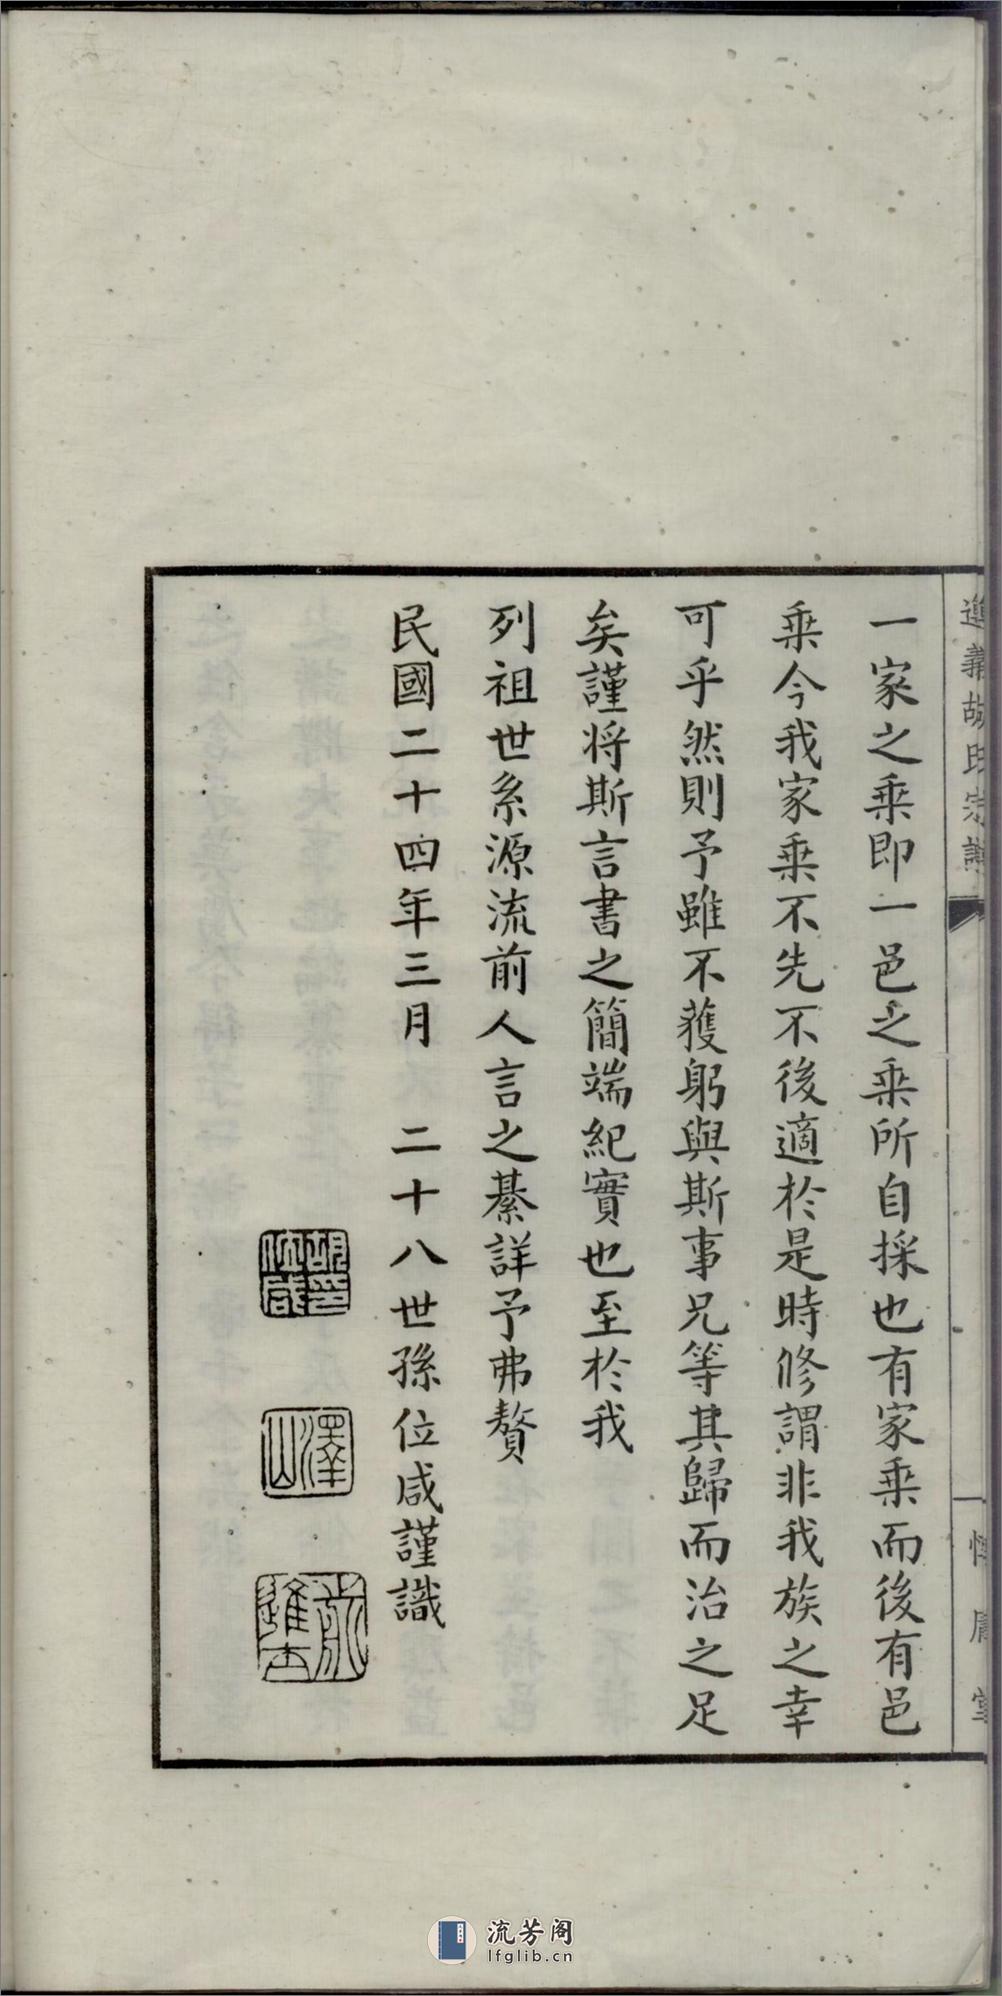 一家之乘即一邑之乘所自採也有家乘而後有邑
乘今我家乘不先不後適於是時修謂非我族之幸
可乎然則予雖不獲躬與斯事兄等其歸而治之足
矣謹將斯言書之簡端紀實也至於我
列祖世系源流前人言之綦詳予弗贅
民國二十四年三月 二十八世孫位咸謹識
胡位咸印
澤山
前進士
胡氏宗譜
一
流芳阁
lfglib.cn